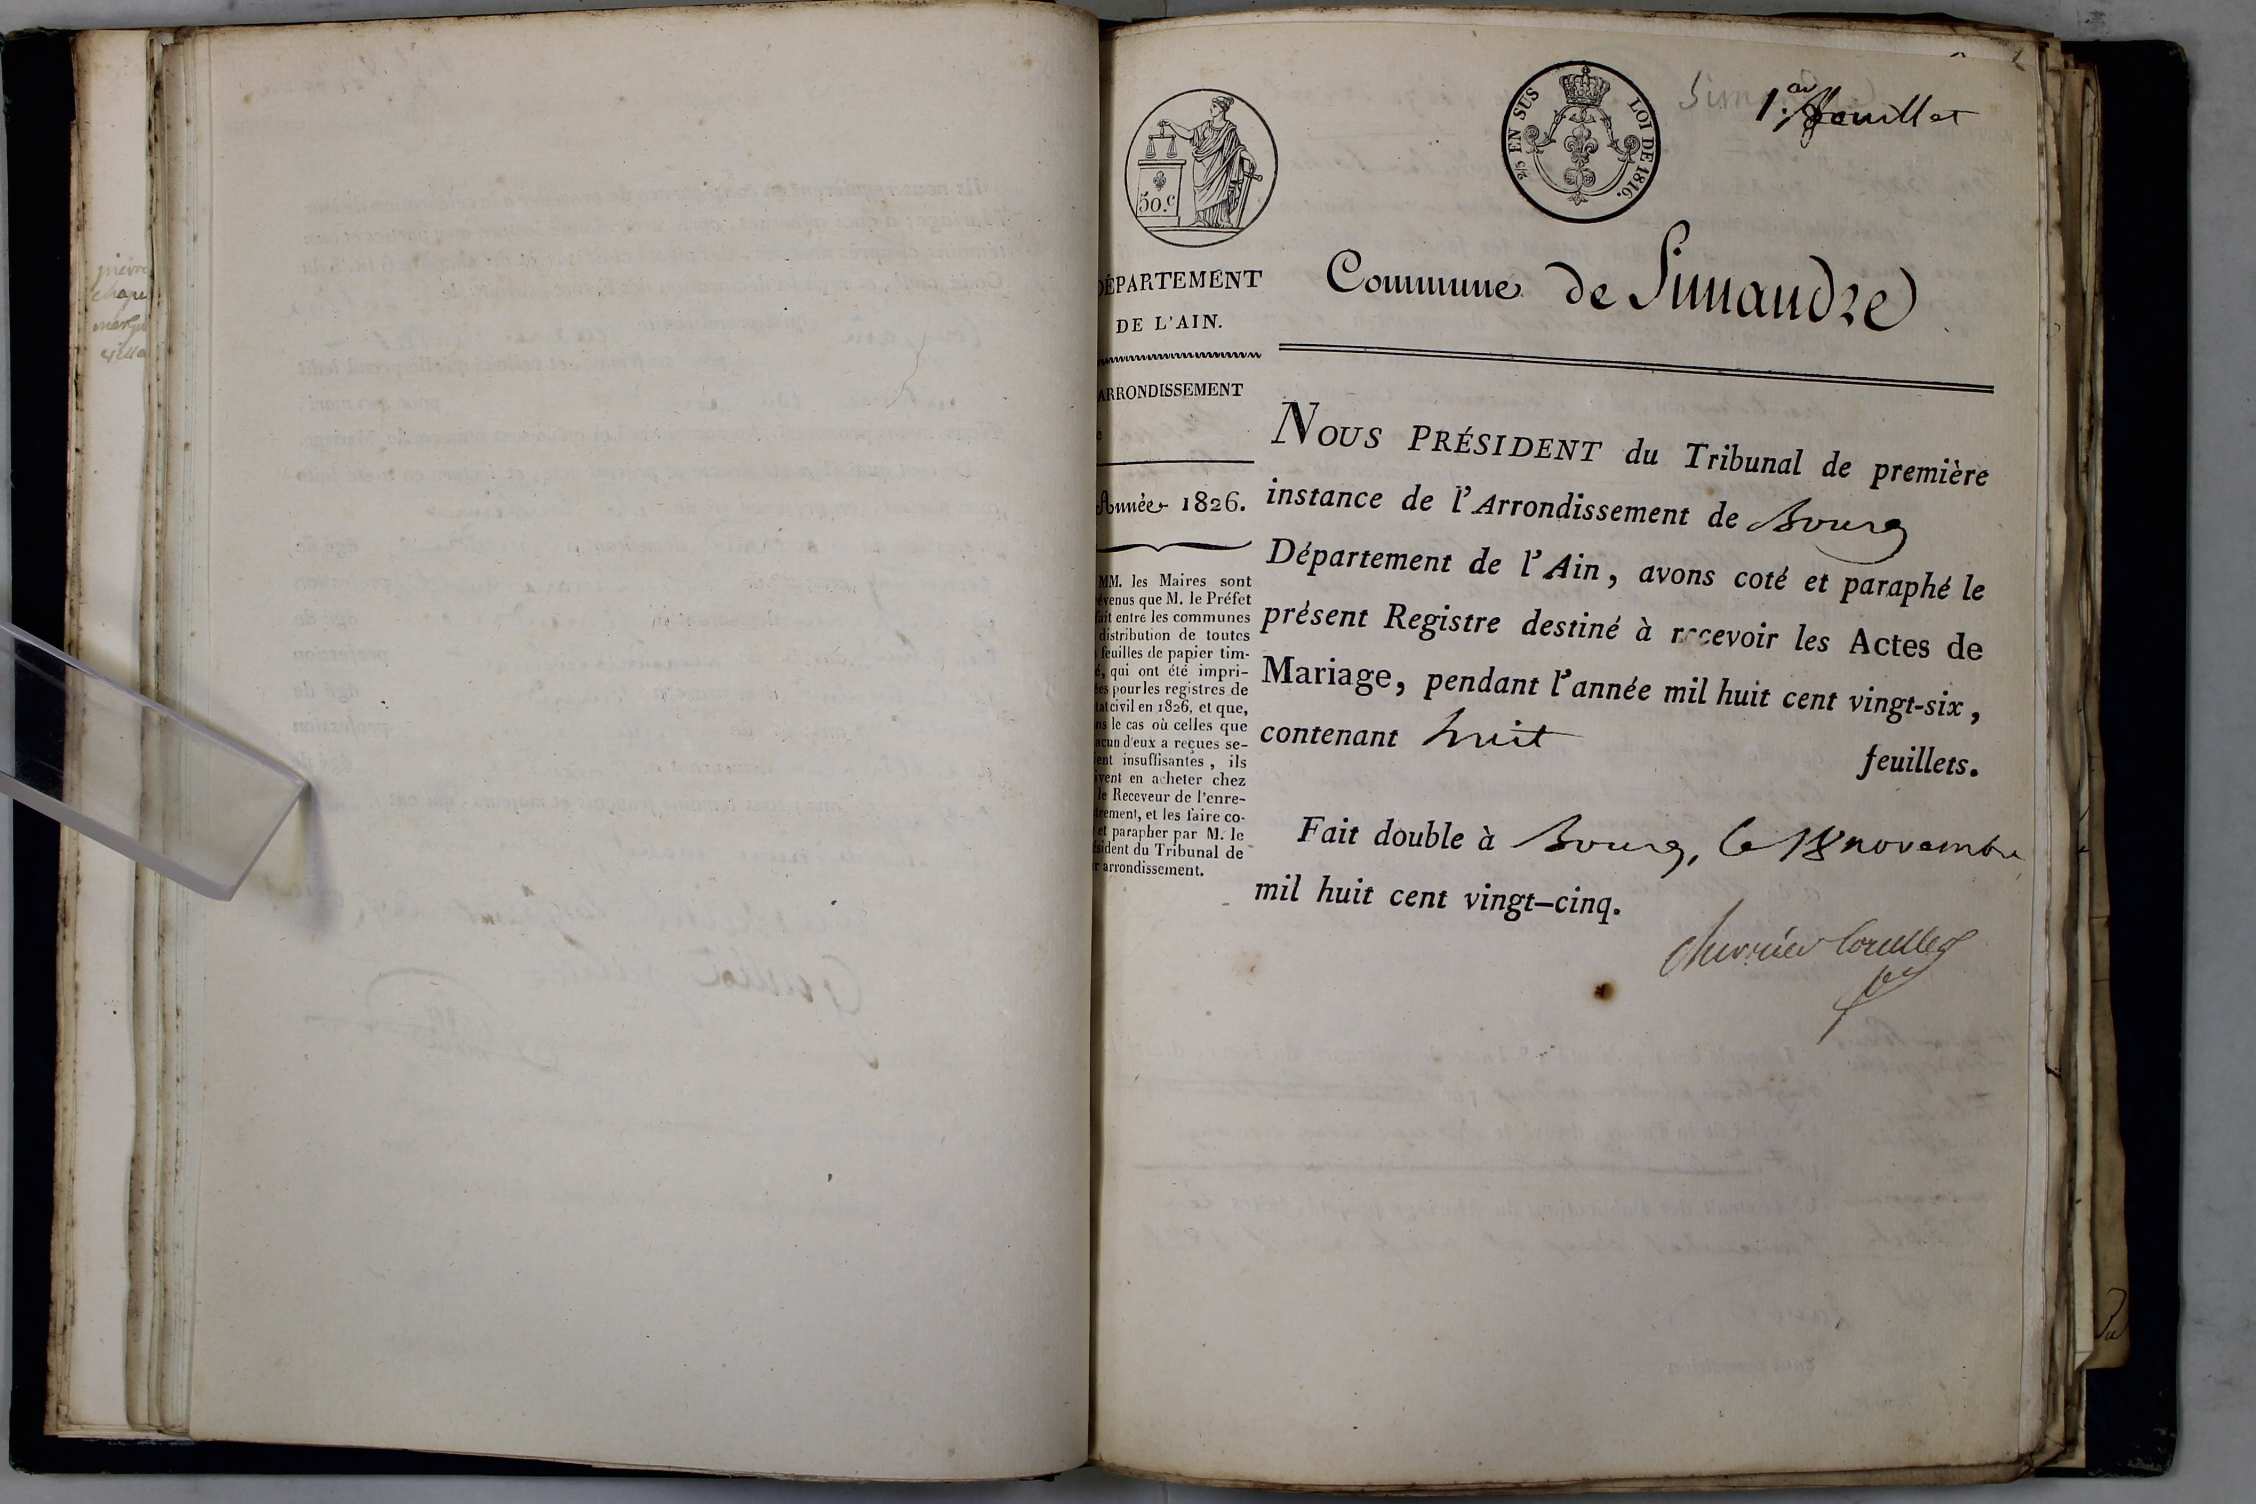 1.er feuillet
50.c
2/5 EN SUS LOI DE 1816.
DÉPARTEMENT
DE L'AIN.
ARRONDISSEMENT
Année 1826.
MM. les Maires sont
évenus que M. le Préfet
fait entre les communes
distribution de toutes
feuilles de papier tim-
é, qui ont été impri-
ées pour les registres de
tat civil en 1826, et que,
ns le cas où celles que
acun d'eux a reçues se-
ient insuffisantes, ils
ivent en acheter chez
le Receveur de l'enre-
trement, et les faire co-
et parapher par M. le
ésident du Tribunal de
r arrondissement.
Commune de Simandre
NOUS PRÉSIDENT du Tribunal de première
instance de l'Arrondissement de Bourg
Département de l'Ain, avons coté et paraphé le
présent Registre destiné à recevoir les Actes de
Mariage, pendant l'année mil huit cent vingt-six,
contenant huit feuillets.
Fait double à Bourg, le 18 novembre
mil huit cent vingt-cinq.